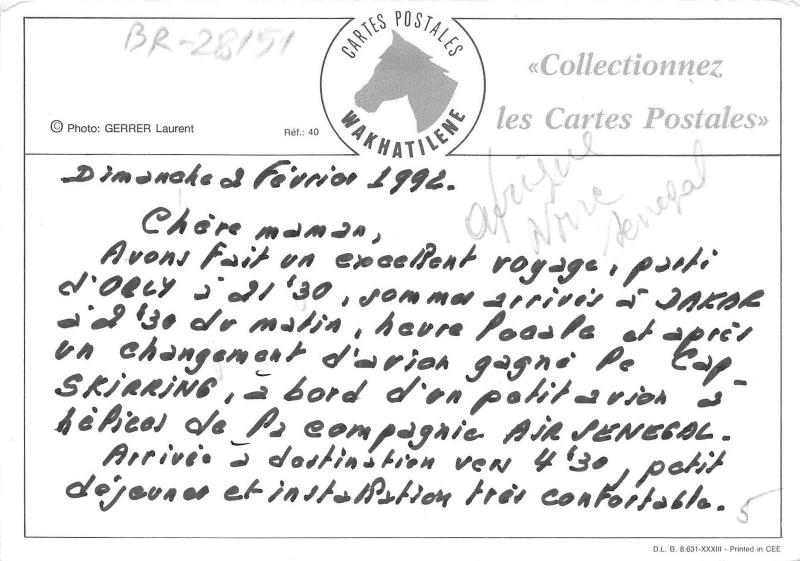 BR-28/151
CARTES POSTALES
WAKHATILENE
«Collectionnez
les Cartes Postales»
© Photo: GERRER Laurent
Réf.: 40
Afrique
Noire
Senegal
Dimanche 2 Février 1992.
Chère maman,
Avons fait un excellent voyage, parti
d'ORLY à 21 '30, sommes arrivés à DAKAR
à 2 '30 du matin, heure locale et après
un changement d'avion gagné le Cap
SKIRRING, à bord d'un petit avion à
hélices de la compagnie AIR SENEGAL.
Arrivée à destination vers 4 '30, petit
déjeuner et installation très confortable.
5
D.L. B. 8.631-XXXIII - Printed in CEE